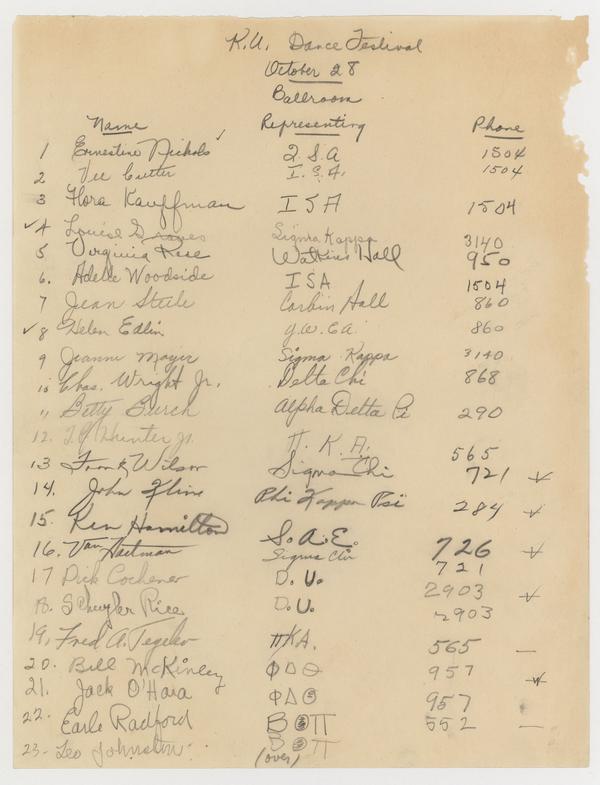 K.U. Dance Festival
October 28
Ballroom
Name Representing Phone
1 Ernestine Nichols I.S.A 1504
2 Vee Cutter I.S.A. 1504
3 Flora Kauffman ISA 1504
4 Louise Graves Sigma Kappa 3140
5 Virginia Rice Watkins Hall 950
6. Adelle Woodside ISA 1504
7 Jean Steele Corbin Hall 860
8 Helen Edlin Y.W.C.A. 860
9 Jeanne Moyer Sigma Kappa 3140
10 Chas. Wright Jr. Delta Chi 868
11 Betty Burch Alpha Delta Pi 290
12. Hunter Jr. Π.K.A. 565
13 Frank Wilson Sigma Chi 721
14. John Kline Phi Kappa Psi 284
15. Ken Hamilton S.A.E. 726
16. Van Hartman Sigma Chi 721
17 Dick Cochener D.U. 2903
18. Schuyler Rice D.U. 2903
19. Fred A. ΠKA. 565
20. Bill McKinley ΦΔΘ 957
21. Jack O'Hara ΦΔΘ 957
22. Earle Radford BΘΠ 552
23- Leo Johnston BΘΠ
(over)